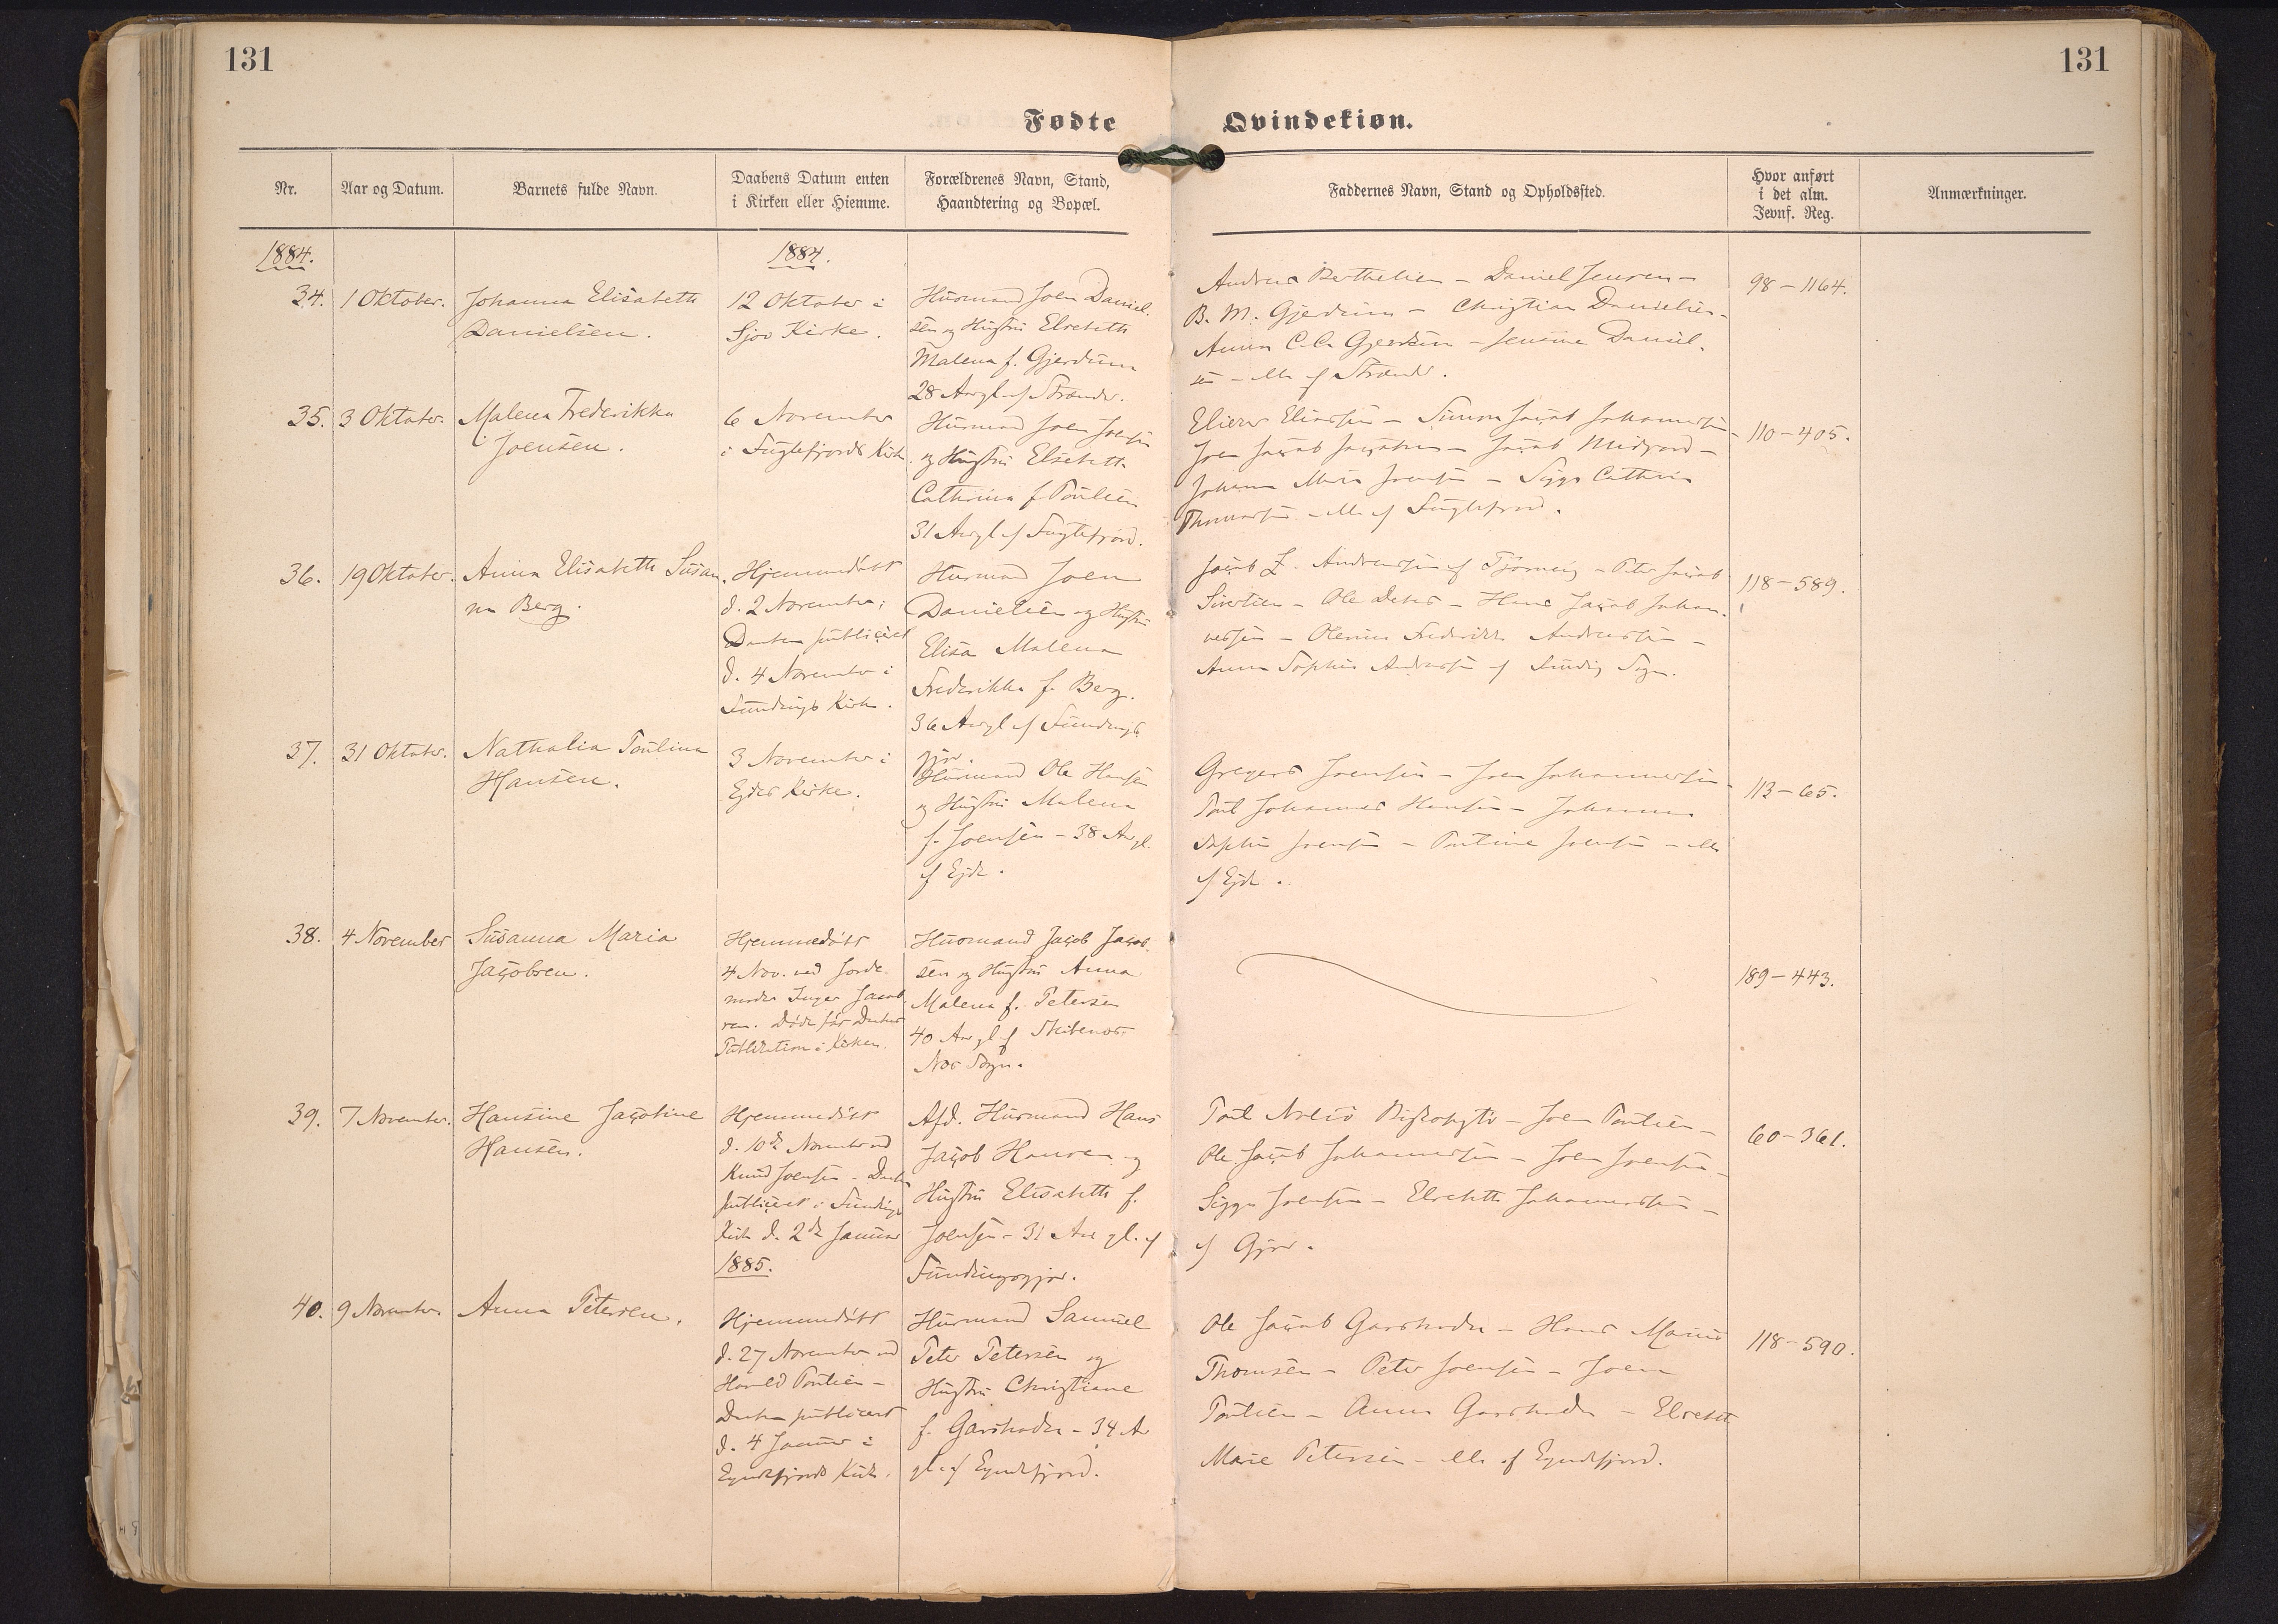 131
131
Fødte
Qvindekiøn.
Nr.
Aar og Datum.
Barnets fulde Navn.
Daabens Datum enten
i Kirken eller Hiemme.
Forældrenes Navn, Stand,
Haandtering og Bopæl.
Faddernes Navn, Stand og Opholdssted.
Hvor anført
i det alm.
Jevnf. Reg.
Anmærkninger.
1884.
1884.
34.
1 Oktober.
Johanna Elisabeth
Danielsen.
12 Oktober i
Sjov Kirke.
Husmand Joen Daniel-
sen og Hustru Elsebeth
Malena f. Gjerdum
28 Aar gl. af Strænder.
Andreas Berthelsen – Daniel Jensen –
B. M. Gjerdum – Christian Danielsen –
Anna C. C. Gjerdum – Jensine Daniel-
sen – alle af Strænder.
98 – 1164.
35.
3 Oktober.
Malena Frederikka
Joensen.
6 November
i Fuglefjords Kirke.
Husmand Joen Joensen
og Hustru Elsebeth
Cathrina f. Poulsen
31 Aar gl. af Fuglefjord.
Elieser Eliassen – Simon Jacob Johannessen –
Joen Jacob Jacobsen – Jacob Midjord –
Johanna Maria Joensen – Sigga Cathrina
Thomassen – alle af Fuglefjord.
110 – 405.
36.
19 Oktober.
Anna Elisabeth Susan-
na Berg.
Hjemmedöbt
d. 2 November;
Daaben publiceret
d. 4 November i
Fundings Kirke.
Husmand Joen
Danielsen og Hustru
Elisa Malena
Frederikka f. Berg.
36 Aar gl. af Fundings-
gjov.
Jacob Andreassen af Tjörnevig – Peter Jacob
Sivertsen – Ole – Hans Jacob Johan-
nessen – Frederikka Andreassen –
Anna Sophia Andreassen af Funding Sogn.
118 – 589.
37.
31 Oktober.
Nathalia Poulina
Hansen.
3 November i
Ejdes Kirke.
Husmand Ole Hansen
og Hustru Malena
f. Joensen – 38 Aar gl.
af Ejde.
Gregers Joensen – Joen Johannessen –
Poul Johannes Hansen – Johanna
Sophia Joensen – Poulina Joensen – alle
af Ejde.
113 – 65.
38.
4 November
Susanna Maria
Jacobsen.
Hjemmedöbt
4 Nov. ved Jorde-
moder Inger Jacob-
sen. Döde för Daabens
Publikation i Kirken.
Husmand Jacob Jacob-
sen og Hustru Anna
Malena f. Petersen
40 Aar gl. af
Næs Sogn.
189 – 443.
39.
7 November.
Hansine Jacobine
Hansen.
Hjemmedöbt
d. 10de November ved
Knud Joensen – Daaben
publiceret i Fundings
Kirke d. 2de Januar
1885.
Afd. Husmand Hans
Jacob Hansen og
Hustru Elisabeth f.
Joensen – 31 Aar gl. af
Fundingsgjov.
Poul Bisköpstö – Joen Poulsen –
Ole Jacob Johannessen – Joen Joensen –
Sigga Joensen – Elsebeth Johannessen –
af Gjov.
60 – 361.
40.
9 November.
Anna Petersen.
Hjemmedöbt
d. 27 November ved
Harald Poulsen –
Daaben publiceret
d. 4 Januar i
Ejndefjords Kirke.
Husmand Samuel
Peter Petersen og
Hustru Christiane
f. Garshodn – 34 Aar
gl. af Ejndefjord.
Ole Jacob Garshodn – Hans Marius
Thomsen – Peter Joensen – Joen
Poulsen – Anna Garshodn – Elsebeth
Marie Petersen – alle af Ejndefjord.
118 – 590.